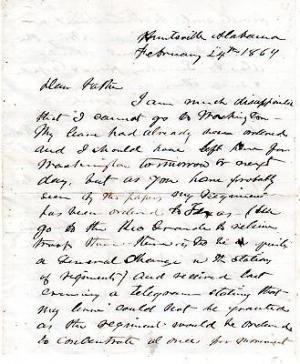 Huntsville Alabama
February 24th 1869
Dear Father
I am much disappointed
that I cannot go to Washington
My leave had already been ordered
and I should have left here for
Washington tomorrow or next
day, but as you have probably
seen by the papers my Regiment
has been ordered to Texas (We
go to the Rio Grande to relieve
troops there. There is to be quite
a General Change in the Station
of regiments) and received last
evening a Telegram stating that
my leave could not be granted
as the regiment would be ordered
to concentrate at once for movement